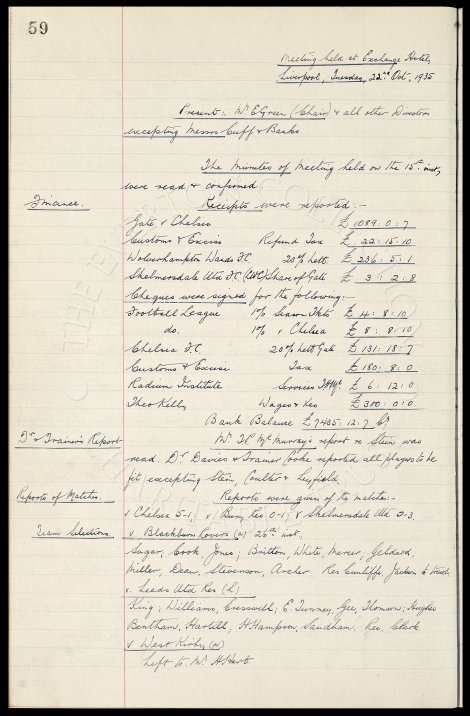 59
Meeting held at Exchange Hotel,
Liverpool, Tuesday, 22nd Oct, 1935
Present:- Mr. E. Green (Chair) & all other Directors
excepting Messrs Cuff & Banks
The Minutes of Meeting held on the 15th inst,
were read & confirmed.
Finance. Receipts were reported:-
Gate v Chelsea £ 1089: 0: 7
Customs & Excise Refund Tax £ 22: 15: 10
Wolverhampton Wands F.C. 20% nett £ 236: 5: 1
Skelmersdale Utd F.C. (LSC) Share of Gate £ 3: 2: 8
Cheques were signed for the following:-
Football League 1% Season Tkts £ 14: 8: 10
do. 1% v Chelsea £ 8: 8: 10
Chelsea F.C. 20% nett Gate £ 131: 18: 7
Customs & Excise Tax £ 180: 8: 0
Radium Institute Services £ 6: 12: 0
Theo Kelly Wages & £ 300: 0: 0
Bank Balance £ 7435: 12: 7
Dr & Trainer's Report Mr. McMurray's report re Stein was
read. Dr. Davies & Trainer Cooke reported all players to be
fit excepting Stein, Coulter & Leyfield.
Reports of Matches. Reports were given of the matches:-
v Chelsea 5-1, v Bury Res 0-1, v Skelmersdale Utd 2-3.
Team Selections. v Blackburn Rovers (a) 26th inst.
Sagar, Cook, Jones; Britton, White, Mercer, Geldard,
Miller, Dean, Stevenson, Archer Res Cunliffe Jackson to travel
v. Leeds Utd Res (h)
King; Williams, Cresswell; E. Tunney, Gee, Thomson; Hughes
Bentham, Hartill, H Hampson, Sandham. Res. Clark
v West Kirby (a)
Left to Mr. H Hart